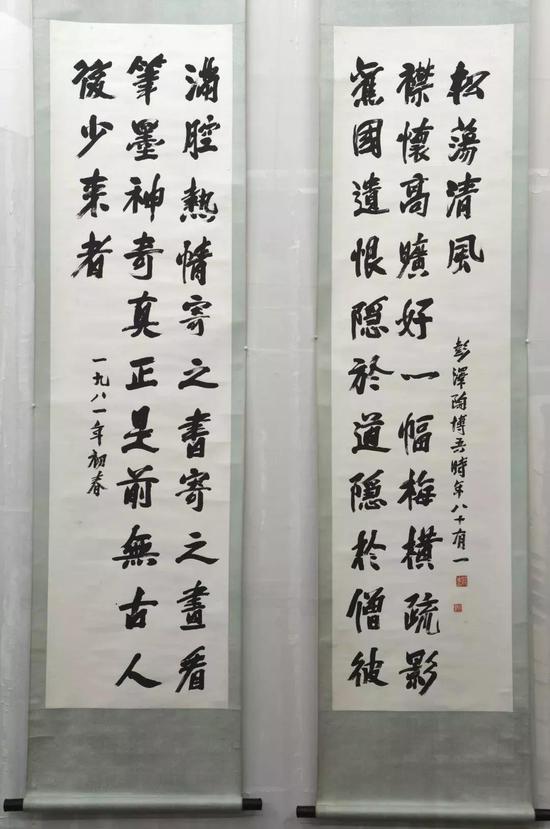 滿腔熱情寄之書寄之畫看
筆墨神奇真正是前無古人
後少来者
一九八一年初春
舊國遺恨隱於道隱於僧彼
襟懷高曠好一幅梅橫疏影
松蕩清風
彭澤陶博吾時年八十有一